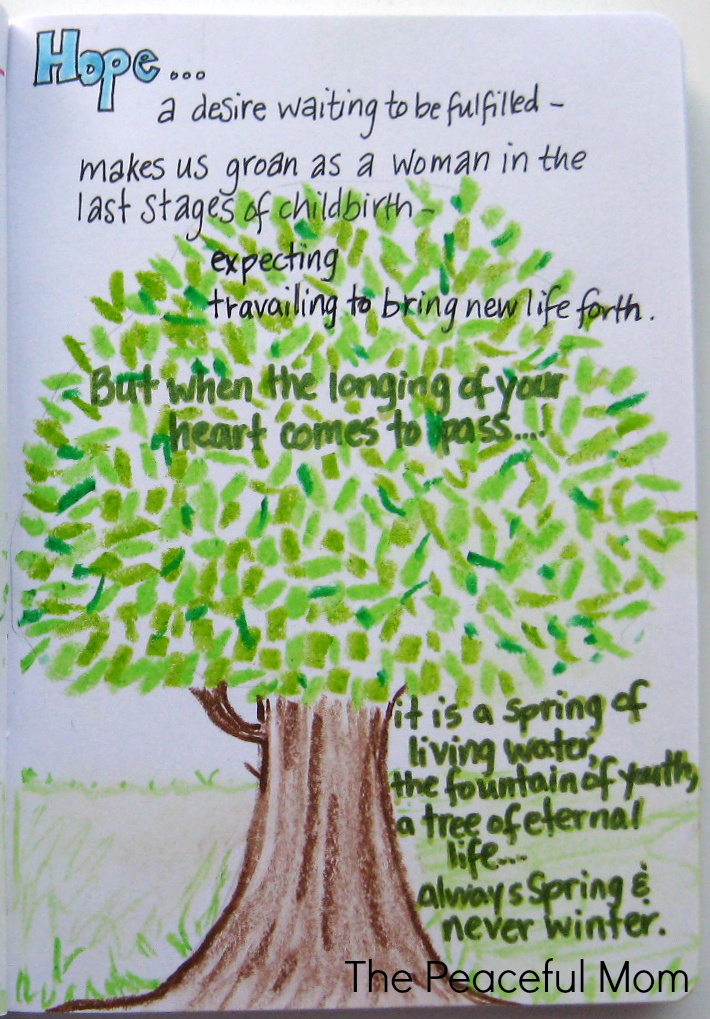 Hope...
a desire waiting to be fulfilled -
makes us groan as a woman in the
last stages of childbirth -
expecting
travailing to bring new life forth.
But when the longing of your
heart comes to pass....
it is a spring of
living water,
the fountain of youth,
a tree of eternal
life....
always Spring &
never winter.
The Peaceful Mom